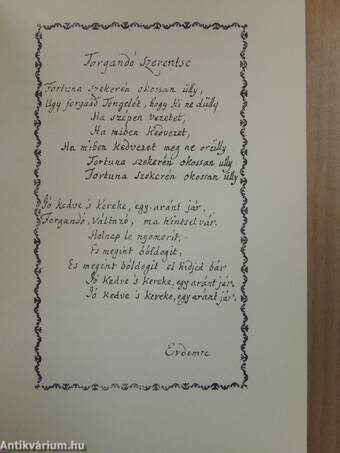 Forgandó Szerentse
Fortuna szekerén okossan ülly,
Ugy forgasd Tengelét, hogy ki ne dülly
Ha szépen vezetet,
Ha miben kedvezet,
Ha miben kedvezet meg ne örülly
Fortuna szekerén okossan ülly
Fortuna szekerén okossan ülly
Jó kedve 's kereke, egy aránt jár,
Forgandó, Váltzó, ma kintsel vár.
Hólnap le nyomorit,
Es megint bóldogit,
Es megint bóldogit el hidjed bár
Jó kedve 's kereke, egy aránt jár.
Jó kedve 's kereke, egy aránt jár.
Antikvárium.hu